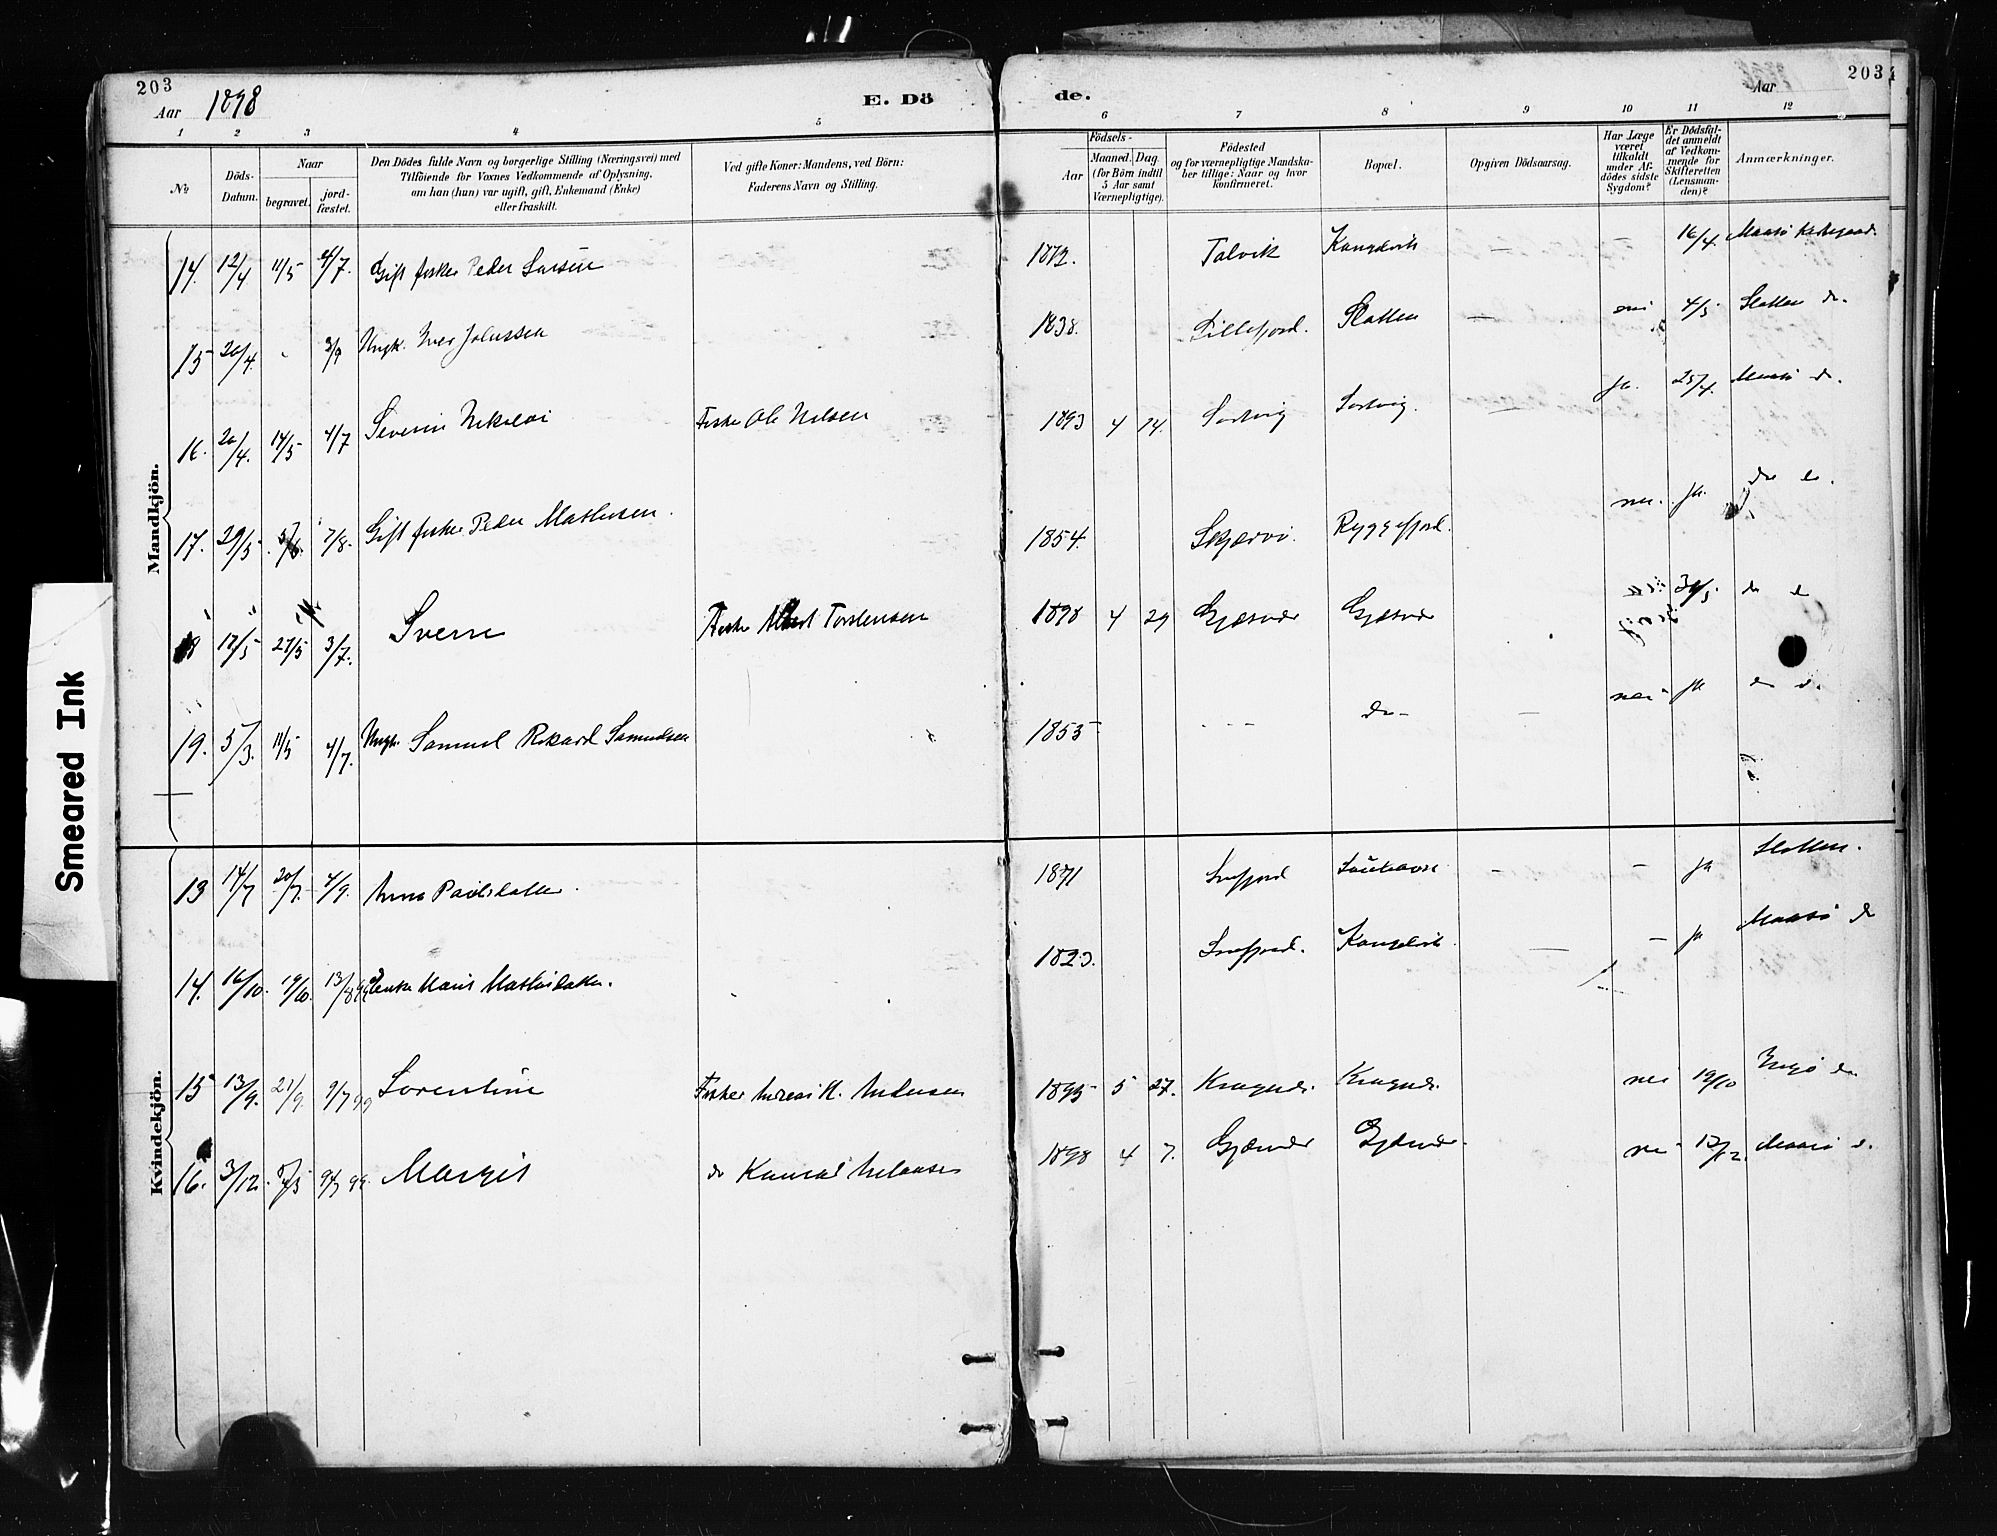 203
Aar 1898
E. Dö
de.
Aar
203
1 2 3 4 5 6 7 8 9 10 11 12
No
Döds-Datum.
Naar
begravet.
jord-fæstet.
Den Dödes fulde Navn og borgerlige Stilling (Næringsvei) med
Tilföiende for Voxnes Vedkommende af Oplysning,
om han (hun) var ugift, gift, Enkemand (Enke)
eller fraskilt.
Ved gifte Koner: Mandens, ved Börn:
Faderens Navn og Stilling.
Födsels-
Aar
Maaned. Dag.
(for Börn indtil
5 Aar samt
Værnepligtige).
Födested
og for værnepligtige Mandska-
ber tillige: Naar og hvor
konfirmeret.
Bopæl.
Opgiven Dödsaarsag.
Har Læge
været
tilkaldt
under Af-
dödes sidste
Sygdom?
Er Dödsfal-
det anmeldt
af Vedkom-
mende for
Skifteretten
(Lensman-
den)?
Anmærkninger.
Mandkjön.
14. 12/4 11/5 4/7. Gift fisker Peder Larsen 1872. Talvik — — 16/4. Maasø
15 20/4. 3/9 Ungk. Iver Johnssen 1838. Lillefjord. Slotten — 4/5 Slotten do.
16. 20/4. 14/5 4/7 Severin Nikolai Fisker Ole Nilsen 1893 4 14. Sortvig Sortvig. — ja. 25/4. Maasø do.
17. 29/5. 7/8. Gift fisker Peder Mathisen. 1854. Skjærvø. Ryggefjord. nei. ja. do
18 17/5 27/5 3/7. Sverre Fisker Albert Torstensen 1898 4 29 Gjæsvær Gjæsvær 30/5. do
19. 5/3. 11/5 4/7. Ungk. Samuel Rikard Samuelsen 1853 - - - do — nei ja do
Kvindekjön.
13 14/7 20/7. 4/9. Anna Paulsdatter. 1871 Snefjord — — ja Slotten.
14. 16/10. 19/10. 13/8 99 Enke Marit Mathisdatter. 1823. Snefjord. — — ja Maasø do
15 13/9. 21/9. 9/7 99 Sorentine Fisker Andreas H. Andersen 1895 5 27. nei 19/10 Ingø do
16. 3/12. 99. Margit do Konrad 1898 4 7. Gjæsvær Gjæsvær. nei 12/12. Maasø d.
Smeared Ink